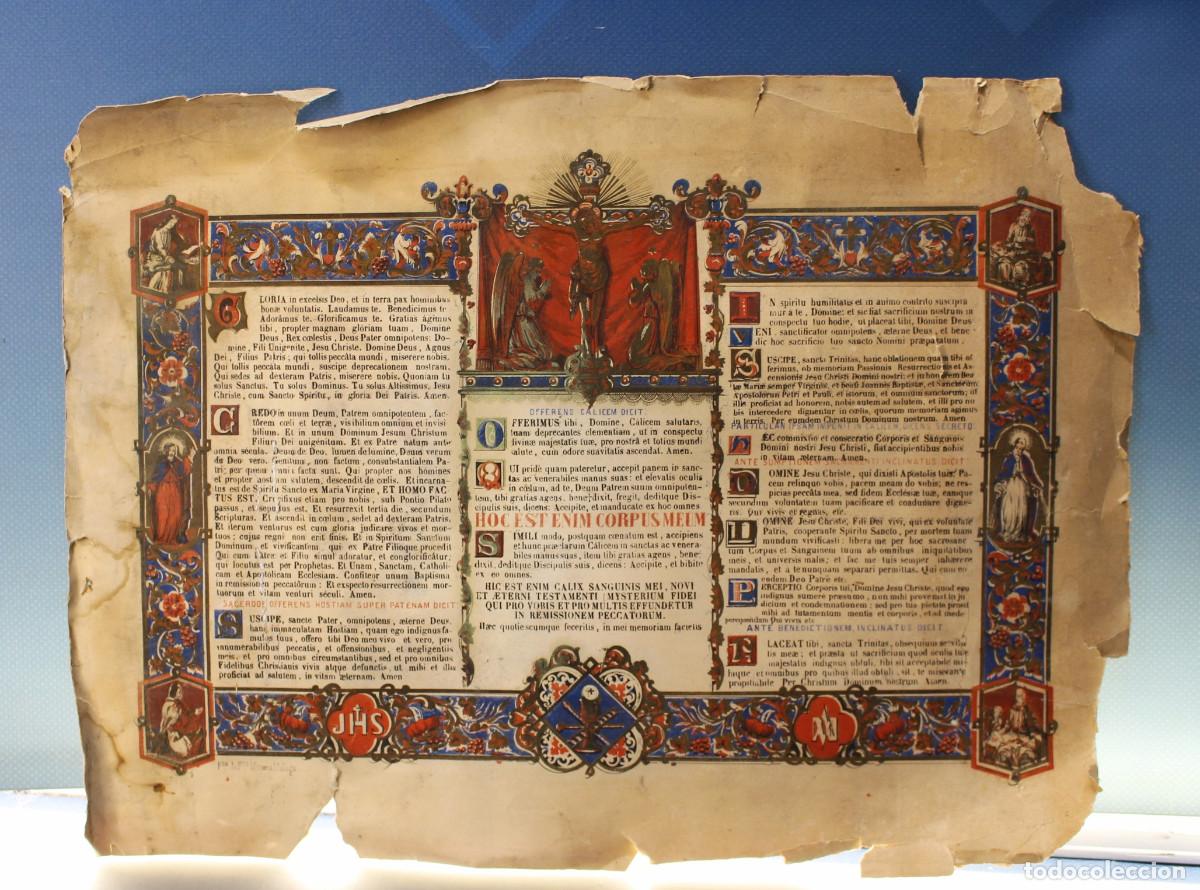 GLORIA in excelsis Deo, et in terra pax hominibus
bonæ voluntatis. Laudamus te. Benedicimus te
Adorâmus te. Glorificamus te. Gratias ágimus
tibi, propter magnam gloriam tuam, Domine
Deus, Rex cœlestis, Deus Pater omnipotens: Do-
mine, Fili Unigenite, Jesu Christe. Domine Deus, Agnus
Dei, Filius Patris; qui tollis peccâta mundi, miserere nobis.
Qui tollis peccata mundi, suscipe deprecationem nostram.
Qui sedes ad dexteram Patris, miserere nobis. Quoniam tu
solus Sanctus. Tu solus Dominus. Tu solus Altissimus, Jesu
Christe, cum Sancto Spiritu, in gloria Dei Patris. Amen.
CREDO in unum Deum, Patrem omnipotentem, fac-
tôrem cœli et terræ, visibilium omnium et invisi
bilium. Et in unum Dominum Jesum Christum
Filium Dei unigenitum. Et ex Patre natum ante
omnia sécula. Deum de Deo, lumen de lumine, Deum verum
de Deo vero. Genitum, non factum, consubstantialem Pa-
tri; per quem omnia facta sunt. Qui propter nos homines
et propter nostram salutem, descendit de cœlis. Et incarna-
tus est de Spiritu Sancto ex Maria Virgine, ET HOMO FAC
TUS EST. Crucifixus etiam pro nobis, sub Pontio Pilato
passus, et sepultus est. Et resurrexit tertia die, secundum
Scripturas. Et ascendit in cœlum, sedet ad dexteram Patris,
Et iterum venturus est cum gloria judicare vivos et mor-
tuos; cujus regni non erit finis. Et in Spiritum Sanctum
Dominum, et vivificantem, qui ex Patre Filioque procedit
Qui cum Patre et Filio simul adoratur, et conglorificâtur;
qui locutus est per Prophetas. Et Unam, Sanctam, Catholi-
cam et Apostolicam Ecclesiam. Confiteor unum Baptisma
in remissionem peccatôrum; Et exspecto resurrectionem mor-
tuorum et vitam ventúri séculi. Amen.
SACERDOS OFFERENS HOSTIAM SUPER PATENAM DICIT
SUSCIPE, sancte Pater, omnipotens, æterne Deus
hanc immaculatam Hostiam, quam ego indignus fa-
mulus tuus, offero tibi Deo meo vivo et vero, pro
innumerabilibus peccatis, et offensionibus, et negligentiis
meis, et pro omnibus circumstantibus, sed et pro omnibus
Fidelibus Christianis vivis atque defunctis, ut mihi et illis
proficiat ad salutem, in vitam ælernam. Amen
OFFERENS CALICEM DICIT.
OFFERIMUS tibi, Domine, Calicem salutaris,
tuam deprecantes clementiam, ut in conspectu
divinæ majestatis tuæ, pro nostrâ et totius mundi
salute, cum odore suavitatis ascendat. Amen.
QUI pridè quam pateretur, accepit panem in sanc-
tas ac venerabiles manus suas; et elevatis oculis
in cœlum, ad te, Deum Patrem suum omnipoten-
tem, tibi gratias agens, benedixit, fregit, deditque Dis-
cipulis suis, dicens: Accipite, et manducate ex hoc omnes
HOC EST ENIM CORPUS MEUM
SIMILI modo, postquam cœnatum est, accipiens
et hunc præclarum Calicem in sanctas ac venera-
biles manus suas, item tibi gratias agens, bene-
dixit, deditque Discipulis suis, dicens: Accipite, et bibite
ex eo omnes.
HIC EST ENIM CALIX SANGUINIS MEI, NOVI
ET ÆTERNI TESTAMENTI (MYSTERIUM FIDEI
QUI PRO VOBIS ET PRO MULTIS EFFUNDETUR
IN REMISSIONEM PECCATORUM.
Hæc quotiescumque feceritis, in mei memoriam facietis
IN spiritu humilitatis et in animo contrito suscipia
mur a te, Domine; et sic fiat sacrificium nostrum in
conspectu tuo hodie, ut placeat tibi, Domine Deus
VENI, sanctificator omnipotens, æterne Deus, et bene-
dic hoc sacrificio tuo sancto Nomini præparatum.
SUSCIPE, sancta Trinitas, hanc oblationem quam tibi of
ferimus, ob memoriam Passionis Resurrectionis et As-
censionis Jesu Christi Domini nostri; et in honorem Bea
tæ Mariæ semper Virginis, et beati Joannis Baptistæ, et Sanctorum
Apostolorum Petri et Pauli, et istorum, et omnium sanctorum; ut
illis proficiat ad honorem, nobis autem ad salutem, et illi pro no
bis intercedere dignentur in cœlis, quorum memoriam agimus
in terris. Per eumdem Christum Dominum nostrum. Amen
HÆC commixtio et consecratio Corporis et Sanguinis
Domini nostri Jesu Christi, fiat accipientibus nobis
in vitam æternam. Amen.
ANTE SUMPTIONEM SACRAMENTI INCLINATUS DICIT
DOMINE Jesu Christe, qui dixisti Apostolis tuis: Pa-
cem relinquo vobis, pacem meam do vobis; ne res-
picias peccâta mea, sed fidem Ecclesiæ tuæ, eamque
secundum voluntatem tuam pacificare et coadunare digne-
ris. Qui vivis et regnas, etc.
DOMINE Jesu Christe, Fili Dei vivi, qui ex voluntate
Patris, cooperante Spiritu Sancto, per mortem tuam
mundum vivificasti; libera me per hoc sacrosanc
tum Corpus et Sanguinem tuum ab omnibus iniquitatibus
meis, et universis malis; et fac me tuis semper inhærere
mandatis, et a te nunquam separari permittas. Qui cum eo-
dem Deo Patre etc.
PERCEPTIO Corporis tui, Domine Jesu Christe, quod ego
indignus sumere præsumo, non mihi proveniat in ju
dicium et condemnationem; sed pro tua pietate prosit
mihi ad tutamentum mentis et corporis, et ad mede-
percipiendam Qui vivis etc
ANTE BENEDICTIONEM, INCLINATUS DICIT
PLACEAT tibi, sancta Trinitas, obsequium servitu
tis meæ; et præsta ut sacrificium quod oculis tuæ
majestatis indignus obtuli, tibi sit acceptabile mi-
hique et omnibus pro quibus illud obtuli, sit, te miserante
propitiabile Per Christum Dominum nostrum Amen.
JHS
todocoleccion